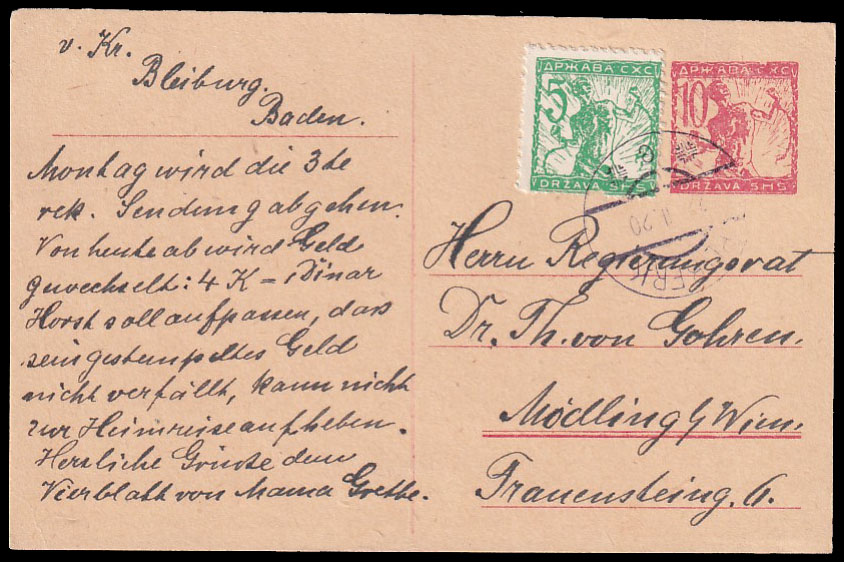 v. Kr.
Bleiburg.
Baden.
Montag wird die 3te
rek. Sendung abgehen.
Von heute ab wird Geld
gewechselt: 4 K = 1 Dinar
Horst soll aufpassen, dass
sein gestempeltes Geld
nicht verfällt, kann nicht
zur Heimreise aufheben.
Herzliche Grüsse dem
Vierblatt von Mama Grethe.
5
ДРЖАВА СХС
DRŽAVA SHS
10
ДРЖАВА СХС
DRŽAVA SHS
20
Herrn Regierungsrat
Dr. Th. von Gohren.
Mödling b/ Wien.
Frauensteing. 6.